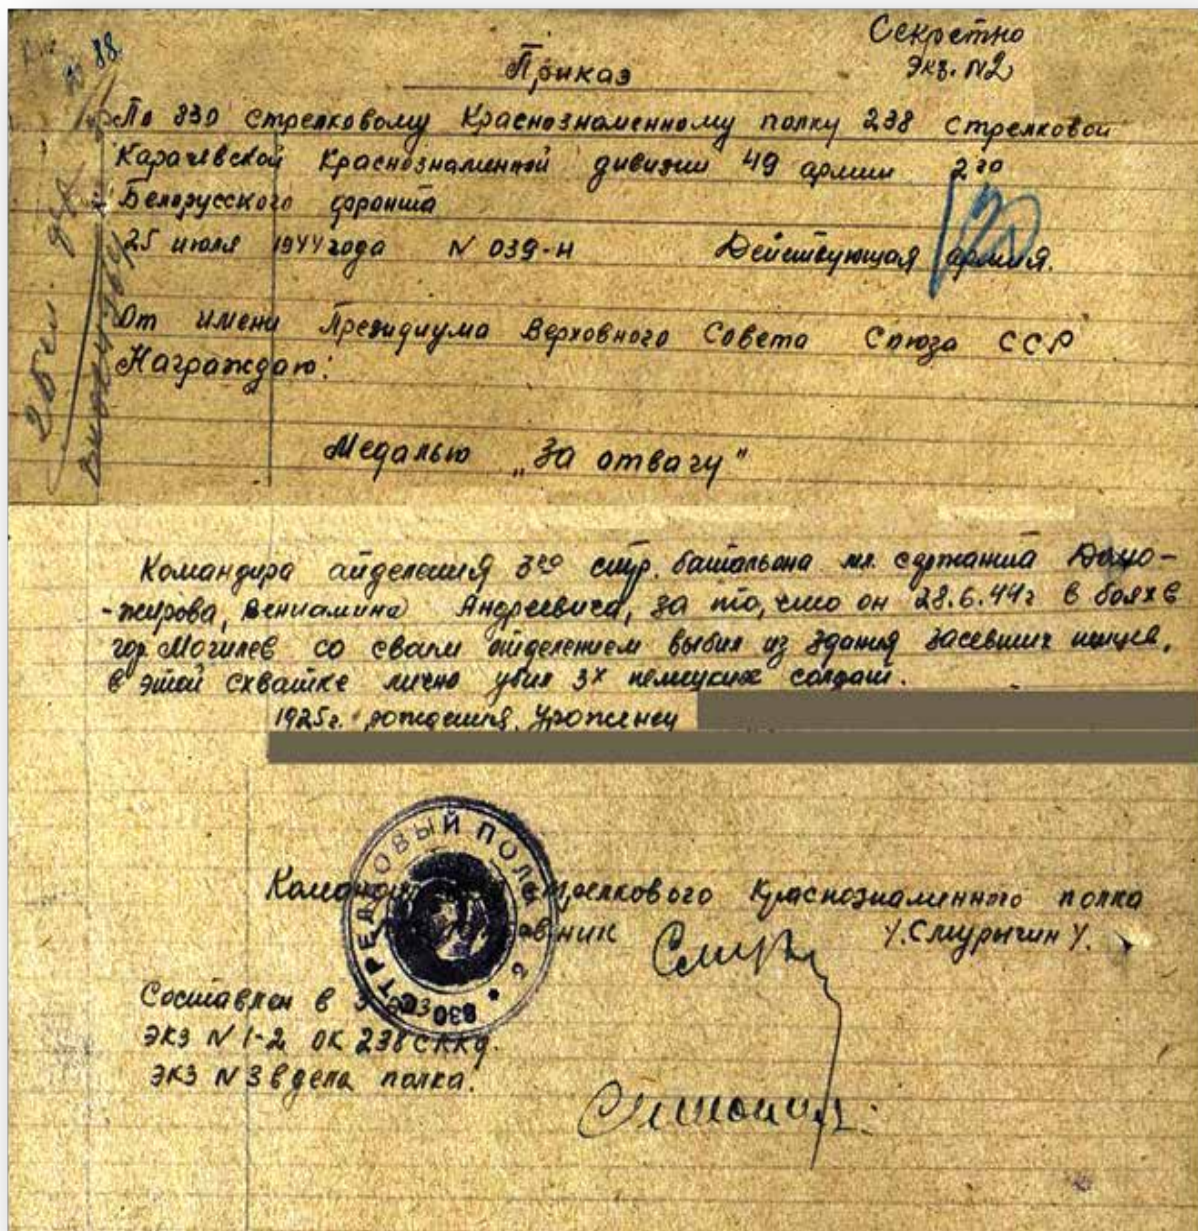 Секретно
Экз. N2
88
Приказ
По 830 стрелковому Краснознаменному полку 238 стрелковой
Карачевской Краснознаменной дивизии 49 армии 2го
Белорусского фронта
25 июля 1944 года N 039-Н Действующая армия.
От имени Президиума Верховного Совета Союза ССР
Награждаю:
Медалью „За отвагу"
Командира отделения 3го стр. батальона мл. сержанта
Вениамина Андреевича, за то, что он 28.6.44г в боях в
гор. Могилев со своим отделением выбил из здания засевших немцев,
в этой схватке лично убил 3х немецких солдат.
1925г. рождения, уроженец
830 СТРЕЛКОВЫЙ ПОЛК
стрелкового Краснознаменного полка
/.Смурыгин/.
Составлен в 3 экз
Экз N 1-2 ОК 238 СККД.
Экз N 3 в дела полка.